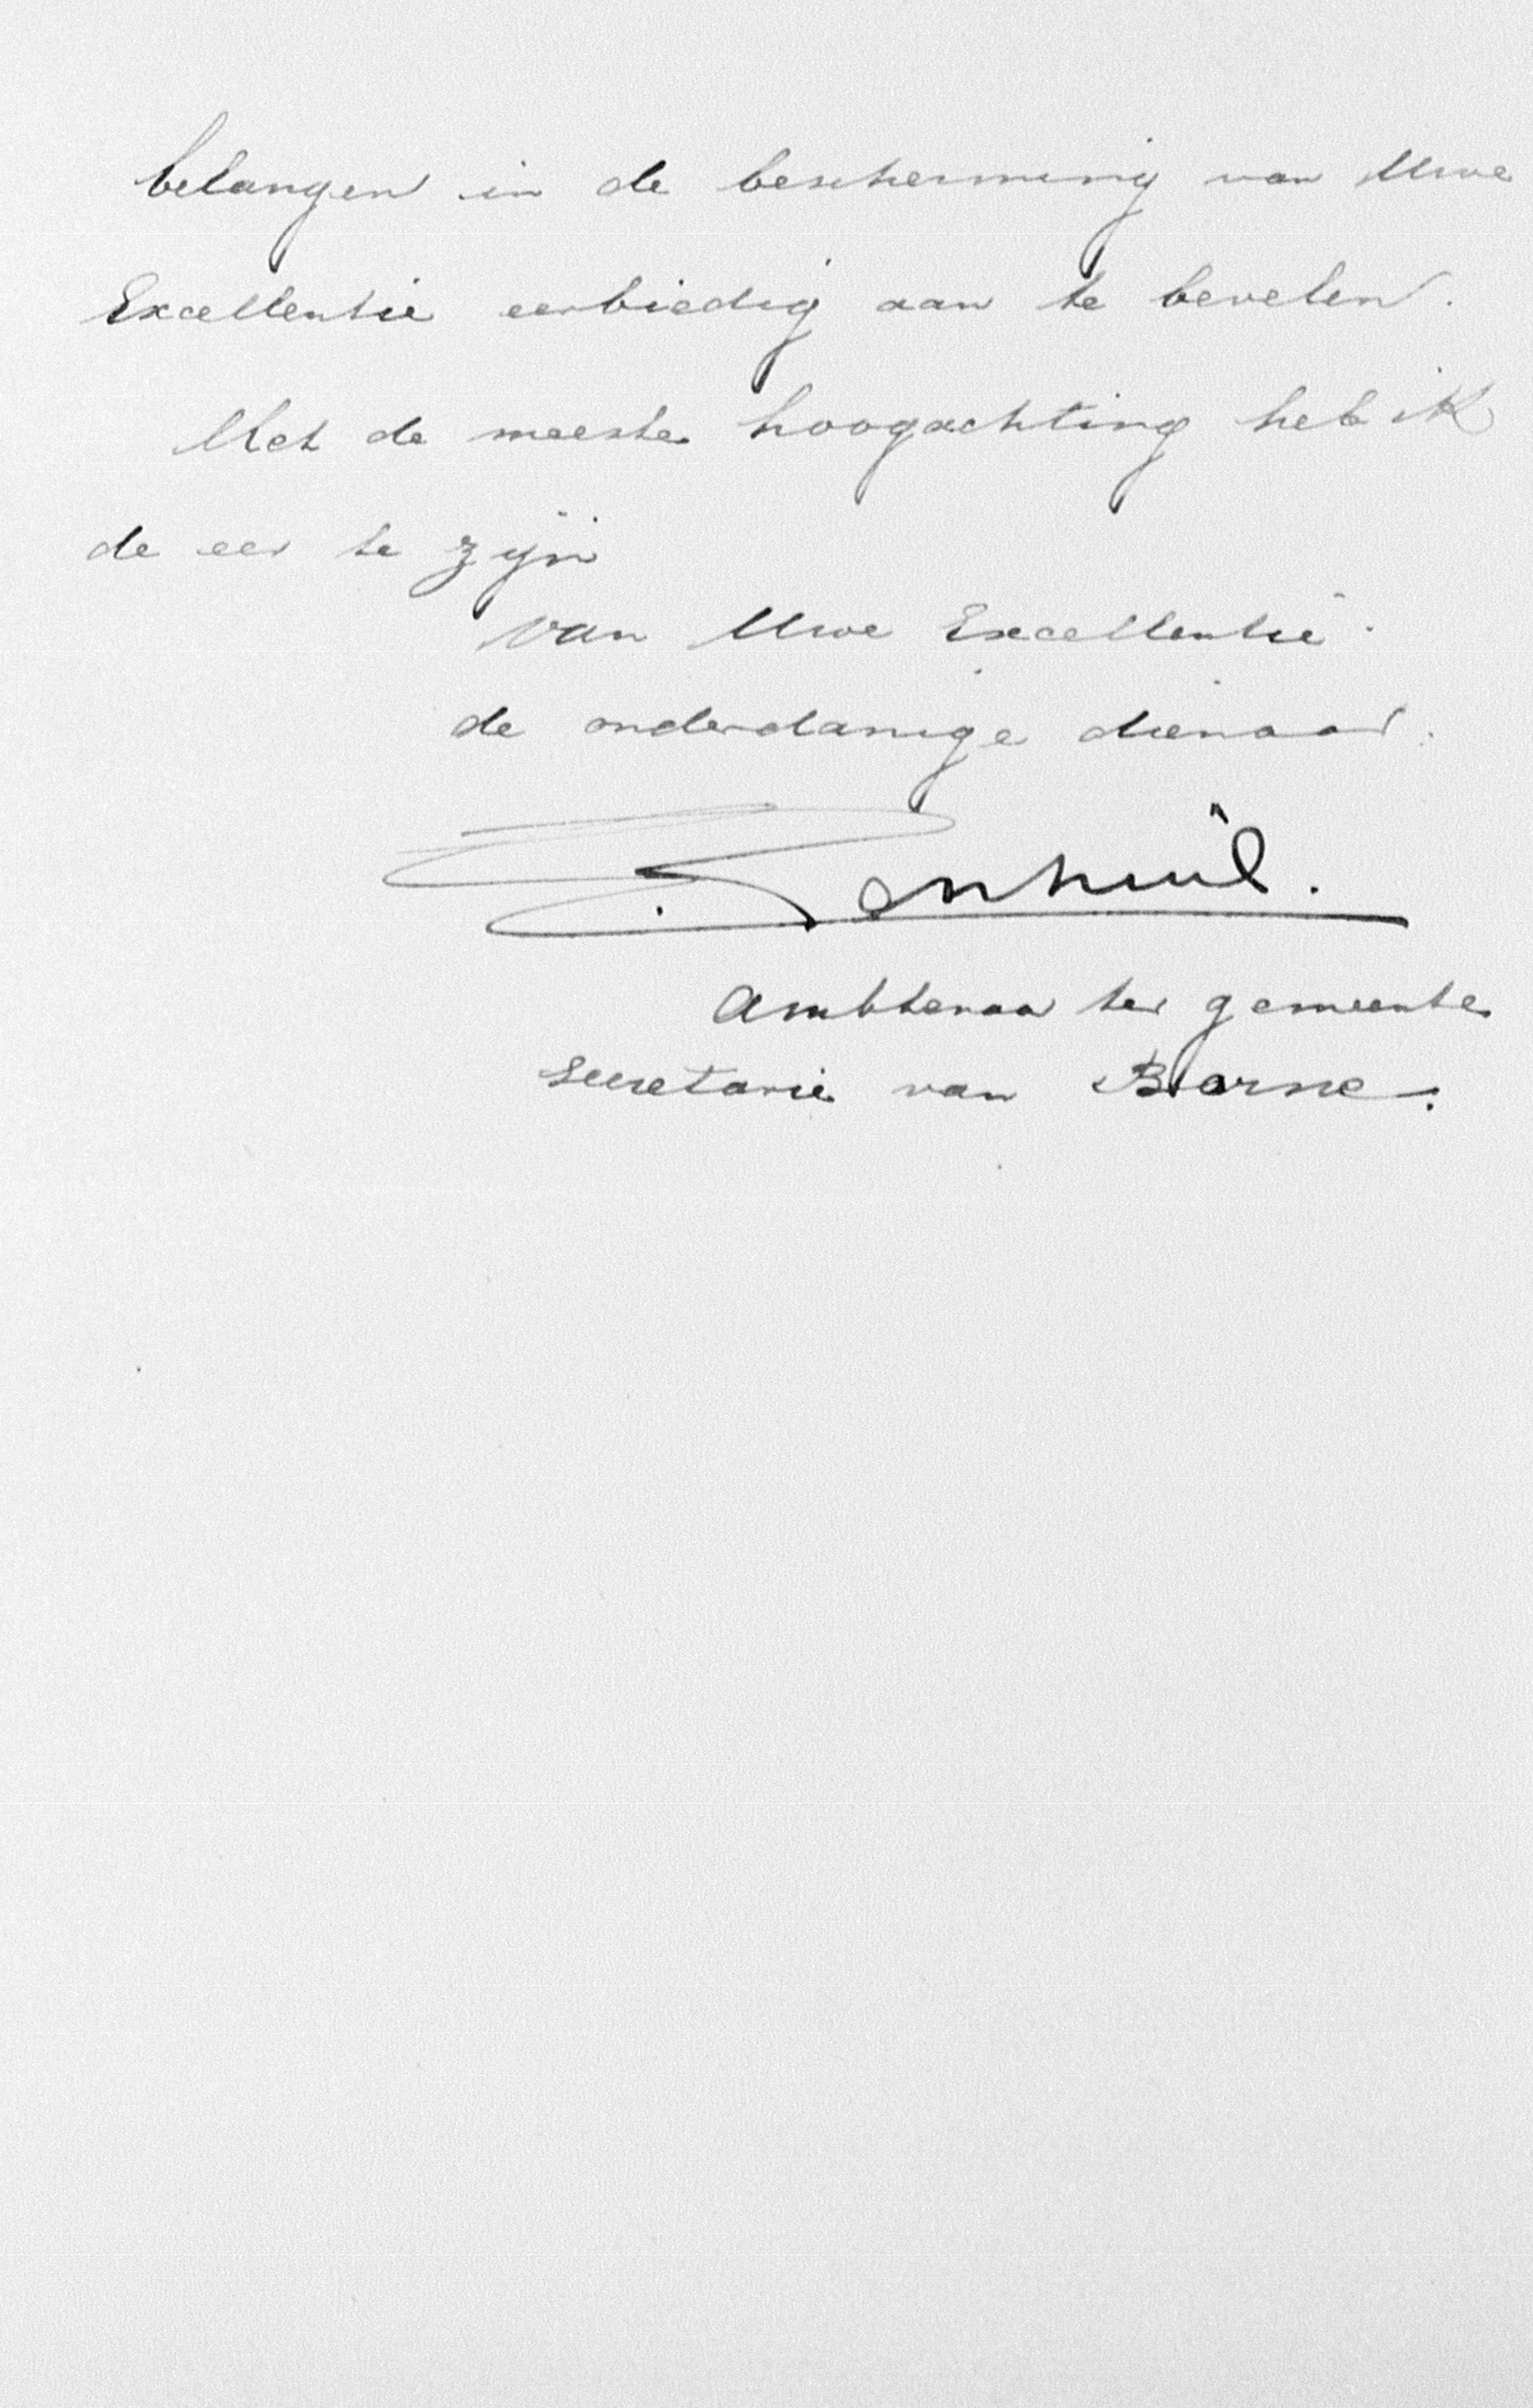 belangen in de bescherming van Uwe
Excellentie eerbiedig aan te bevelen.
Met de meeste hoogachting heb ik
de eer te zijn
van Uwe Excellentie
de onderdanige dienaar.
Ambtenaar ter gemeente
secretarie van Borne.